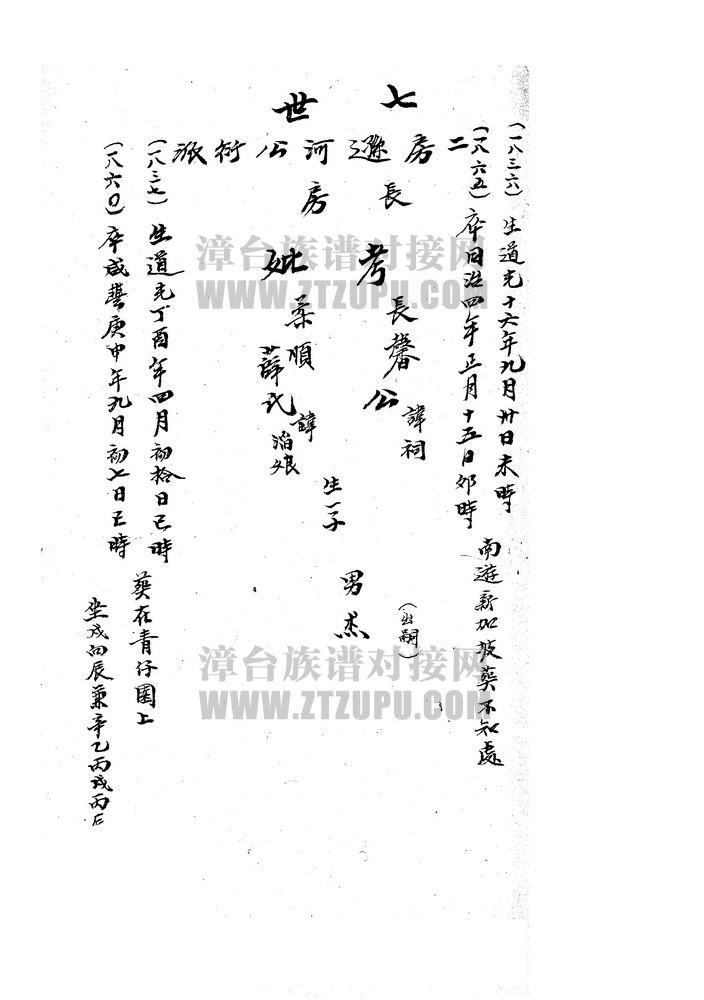 七世
二房遜河公衍派
長房
(一八三六) 生道光十六年九月卅日未時
(一八六五) 卒同治四年正月十五日卯時
南遊新加坡葬不知處
考 長馨公 諱祠
(出嗣)
男杰
生一子
妣 柔順 薛氏 諱 娘
(一八三七) 生道光丁酉年四月初拾日巳時
(一八六〇) 卒咸豐庚申年九月初七日巳時
葬在青仔園上
坐戌向辰兼辛乙丙戌丙辰
漳台族谱对接网
WWW.ZTZUPU.COM
漳台族谱对接网
WWW.ZTZUPU.COM